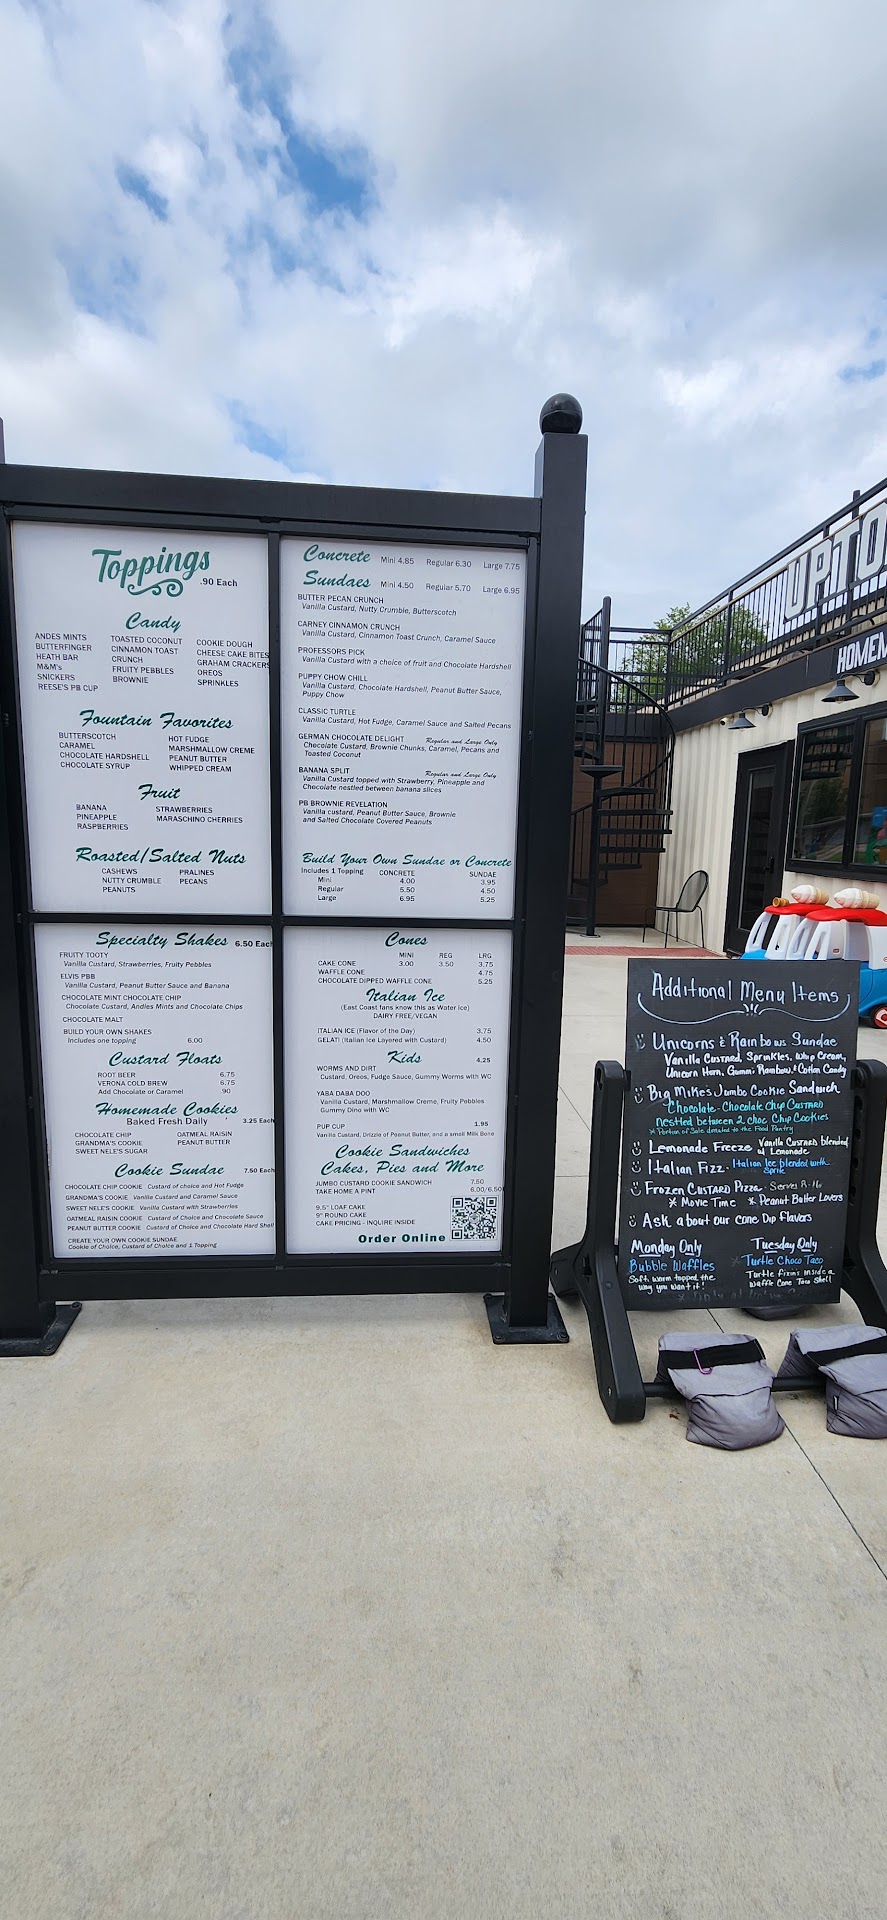 Toppings
.90 Each
Candy
ANDES MINTS
BUTTERFINGER
HEATH BAR
M&M's
SNICKERS
REESE'S PB CUP
TOASTED COCONUT
CINNAMON TOAST
CRUNCH
FRUITY PEBBLES
BROWNIE
COOKIE DOUGH
CHEESE CAKE BITES
GRAHAM CRACKERS
OREOS
SPRINKLES
Fountain Favorites
BUTTERSCOTCH
CARAMEL
CHOCOLATE HARDSHELL
CHOCOLATE SYRUP
HOT FUDGE
MARSHMALLOW CREME
PEANUT BUTTER
WHIPPED CREAM
Fruit
BANANA
PINEAPPLE
RASPBERRIES
STRAWBERRIES
MARASCHINO CHERRIES
Roasted/Salted Nuts
CASHEWS
NUTTY CRUMBLE
PEANUTS
PRALINES
PECANS
Concrete Mini 4.85 Regular 6.30 Large 7.75
Sundaes Mini 4.50 Regular 5.70 Large 6.95
BUTTER PECAN CRUNCH
Vanilla Custard, Nutty Crumble, Butterscotch
CARNEY CINNAMON CRUNCH
Vanilla Custard, Cinnamon Toast Crunch, Caramel Sauce
PROFESSORS PICK
Vanilla Custard with a choice of fruit and Chocolate Hardshell
PUPPY CHOW CHILL
Vanilla Custard, Chocolate Hardshell, Peanut Butter Sauce,
Puppy Chow
CLASSIC TURTLE
Vanilla Custard, Hot Fudge, Caramel Sauce and Salted Pecans
GERMAN CHOCOLATE DELIGHT Regular and Large Only
Chocolate Custard, Brownie Chunks, Caramel, Pecans and
Toasted Coconut
BANANA SPLIT Regular and Large Only
Vanilla Custard topped with Strawberry, Pineapple and
Chocolate nestled between banana slices
PB BROWNIE REVELATION
Vanilla custard, Peanut Butter Sauce, Brownie
and Salted Chocolate Covered Peanuts
Build Your Own Sundae or Concrete
Includes 1 Topping CONCRETE SUNDAE
Mini 4.00 3.95
Regular 5.50 4.50
Large 6.95 5.25
Specialty Shakes 6.50 Each
FRUITY TOOTY
Vanilla Custard, Strawberries, Fruity Pebbles
ELVIS PBB
Vanilla Custard, Peanut Butter Sauce and Banana
CHOCOLATE MINT CHOCOLATE CHIP
Chocolate Custard, Andies Mints and Chocolate Chips
CHOCOLATE MALT
BUILD YOUR OWN SHAKES
Includes one topping 6.00
Custard Floats
ROOT BEER 6.75
VERONA COLD BREW 6.75
Add Chocolate or Caramel .90
Homemade Cookies
Baked Fresh Daily 3.25 Each
CHOCOLATE CHIP
GRANDMA'S COOKIE
SWEET NELE'S SUGAR
OATMEAL RAISIN
PEANUT BUTTER
Cookie Sundae 7.50 Each
CHOCOLATE CHIP COOKIE Custard of choice and Hot Fudge
GRANDMA'S COOKIE Vanilla Custard and Caramel Sauce
SWEET NELE'S COOKIE Vanilla Custard with Strawberries
OATMEAL RAISIN COOKIE Custard of Choice and Chocolate Sauce
PEANUT BUTTER COOKIE Custard of Choice and Chocolate Hard Shell
CREATE YOUR OWN COOKIE SUNDAE
Cookie of Choice, Custard of Choice and 1 Topping
Cones
MINI REG LRG
CAKE CONE 3.00 3.50 3.75
WAFFLE CONE 4.75
CHOCOLATE DIPPED WAFFLE CONE 5.25
Italian Ice
(East Coast fans know this as Water Ice)
DAIRY FREE/VEGAN
ITALIAN ICE (Flavor of the Day) 3.75
GELATI (Italian Ice Layered with Custard) 4.50
Kids 4.25
WORMS AND DIRT
Custard, Oreos, Fudge Sauce, Gummy Worms with WC
YABA DABA DOO
Vanilla Custard, Marshmallow Creme, Fruity Pebbles
Gummy Dino with WC
PUP CUP 1.95
Vanilla Custard, Drizzle of Peanut Butter, and a small Milk Bone
Cookie Sandwiches
Cakes, Pies and More
JUMBO CUSTARD COOKIE SANDWICH 7.50
TAKE HOME A PINT 6.00/6.50
9.5" LOAF CAKE
9" ROUND CAKE
CAKE PRICING - INQUIRE INSIDE
Order Online
UPTO
HOMEM
Additional Menu Items
Unicorns & Rainbows Sundae
Vanilla Custard, Sprinkles, Whip Cream,
Unicorn Horn, Gummi Rainbow, & Cotton Candy
Big Mike's Jumbo Cookie Sandwich
Chocolate-Chocolate Chip Custard
nestled between 2 choc Chip Cookies
* Portion of Sale donated to the Food Pantry
Lemonade Freeze Vanilla Custard blended
w/ Lemonade
Italian Fizz - Italian Ice blended with
Sprite
Frozen Custard Pizza - Serves 8-16
* Movie Time * Peanut Butter Lovers
Ask about our cone Dip flavors
Monday Only
Bubble Waffles
Soft, warm topped the
way you want it!
Tuesday Only
Turtle Choco Taco
Turtle fixins inside a
Waffle Cone Taco Shell